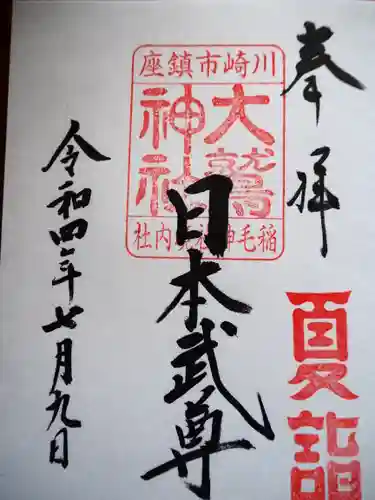 奉拝
夏詣
川崎市鎮座
大鷲神社
稲毛神社境内社
日本武尊
令和四年七月九日